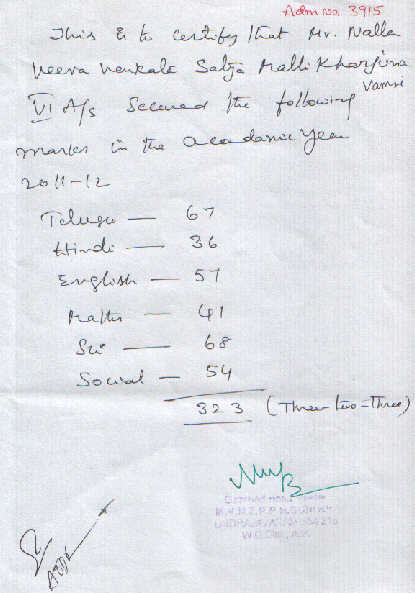 Adm No. 3915
This is to certify that Mr. Nalla
Veera Venkata Satya Mallikharjuna
Vamsi
VI A/s Secured the following
marks in the acadamic year
2011-12
Telugu — 67
Hindi — 36
English — 57
Maths — 41
Sci — 68
Social — 54
323 (Three-two-three)
W.G.Dist., A.P.